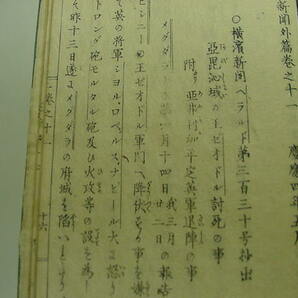 新聞外篇巻之十一　慶應四年五月
○横濱新聞ヘラルド第三百三十号抄出
亞毘沁域の王ゼオドル討死の事
附　亞非利加平定英軍退陣の事
メグダラ 第四月十四日 我三月廿二日 の報告
ビシニーの王ゼオドル軍門へ降伏する事を嫌
て英の将軍シヨル、ロベルス、ナピール大に怒
トロング砲モルタル砲及び火攻等の設を為し
昨十三日遂にメグダラの府城を陥いしより
巻之十一　十六